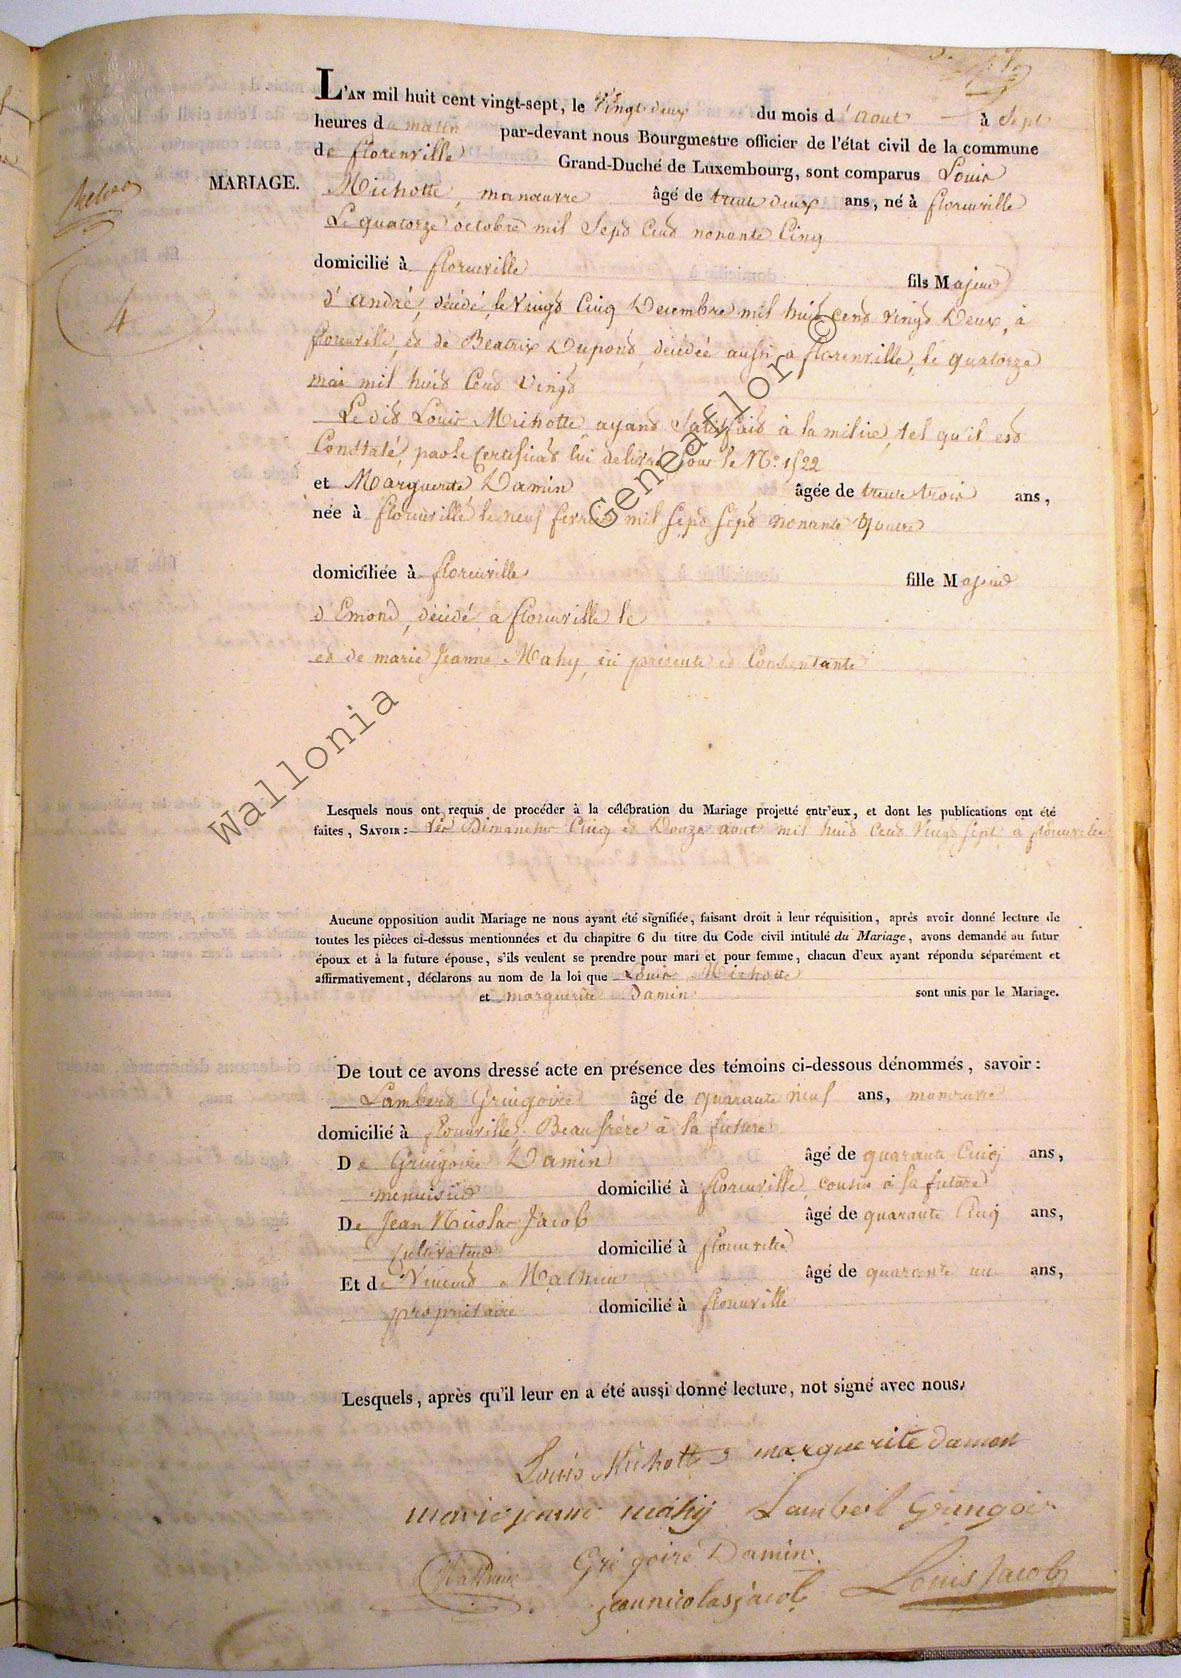 L'AN mil huit cent vingt-sept, le vingt deux du mois d'aout à sept
heures du matin par-devant nous Bourgmestre officier de l'état civil de la commune
de florenville Grand-Duché de Luxembourg, sont comparus Louis
MARIAGE.
4
Michotte, manœuvre âgé de trente deux ans, né à florenville
Le quatorze octobre mil Sept Cent nonante Cinq
domicilié à florenville fils Majeur
d'andré, décédé, le Vingt Cinq Decembre mil huit cent vingt Deux, à
florenville, et de Beatrix Dupont, décédée aussi a florenville, le quatorze
mai mil huit Cent Vingt
Le dit Louis Michotte ayant Satisfait à la milice, tel qu'il est
Constaté, par le Certificat lui delivré sour le No. 1522
et Marguerite Damin âgée de trente trois ans,
née à florenville le neuf fevrier mil sept sept nonante quatre
domiciliée à florenville fille Majeure
d'Emond, décédé, a florenville le
et de marie Jeanne Mahy, ici présente et Consentante
Lesquels nous ont requis de procéder à la célébration du Mariage projetté entr'eux, et dont les publications ont été
faites, SAVOIR: Les Dimanches Cinq et Douze aout mil huit Cent Vingt sept a florenville
Aucune opposition audit Mariage ne nous ayant été signifiée, faisant droit à leur réquisition, après avoir donné lecture de
toutes les pièces ci-dessus mentionnées et du chapitre 6 du titre du Code civil intitulé du Mariage, avons demandé au futur
époux et à la future épouse, s'ils veulent se prendre pour mari et pour femme, chacun d'eux ayant répondu séparément et
affirmativement, déclarons au nom de la loi que Louis Michotte
et marguerite Damin sont unis par le Mariage.
De tout ce avons dressé acte en présence des témoins ci-dessous dénommés, savoir:
Lambert Gringoire âgé de quarante neuf ans, manœuvre
domicilié à florenville Beau frère à la future
De Gringoire Damin âgé de quarante Cinq ans,
menuisier domicilié à florenville, cousin à la future
De Jean Nicolas Jacob âgé de quarante Cinq ans,
cultivateur domicilié à florenville
Et de Vincent âgé de quarante un ans,
propriétaire domicilié à florenville
Lesquels, après qu'il leur en a été aussi donné lecture, not signé avec nous.
Louis Michotte marguerite damen
marie jeanne mahy Lambert Gringoir
Gré goire Damin
jean nicolas jacob Louis Jacob
Wallonia Geneaflor ©